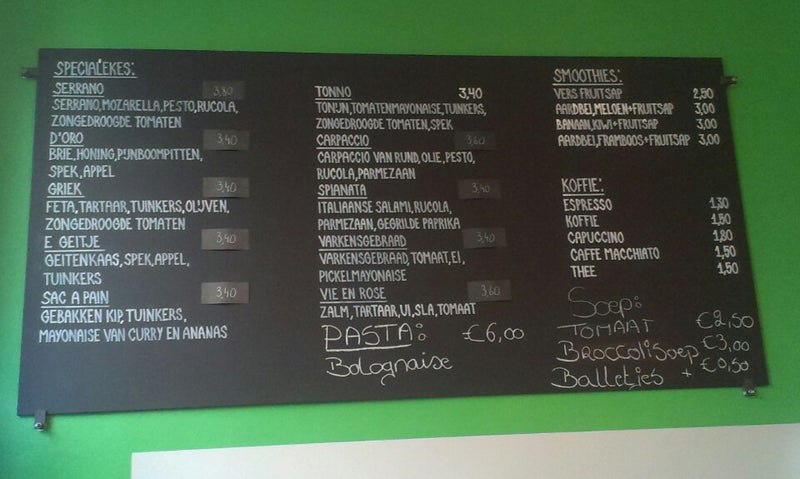 SPECIALEKES:
SERRANO 3,80
SERRANO, MOZARELLA, PESTO, RUCOLA,
ZONGEDROOGDE TOMATEN
D'ORO 3,40
BRIE, HONING, PIJNBOOMPITTEN,
SPEK, APPEL
GRIEK 3,40
FETA, TARTAAR, TUINKERS, OLIJVEN,
ZONGEDROOGDE TOMATEN
E GEITJE 3,40
GEITENKAAS, SPEK, APPEL,
TUINKERS
SAC A PAIN 3,40
GEBAKKEN KIP, TUINKERS,
MAYONAISE VAN CURRY EN ANANAS
TONNO 3,40
TONIJN, TOMATENMAYONAISE, TUINKERS,
ZONGEDROOGDE TOMATEN, SPEK
CARPACCIO 3,60
CARPACCIO VAN RUND, OLIE, PESTO,
RUCOLA, PARMEZAAN
SPIANATA 3,40
ITALIAANSE SALAMI, RUCOLA,
PARMEZAAN, GEGRILDE PAPRIKA
VARKENSGEBRAAD 3,40
VARKENSGEBRAAD, TOMAAT, EI,
PICKELMAYONAISE
VIE EN ROSE 3,60
ZALM, TARTAAR, UI, SLA, TOMAAT
PASTA: €6,00
Bolognaise
SMOOTHIES:
VERS FRUITSAP 2,50
AARDBEI, MELOEN+FRUITSAP 3,00
BANAAN, KIWI+FRUITSAP 3,00
AARDBEI, FRAMBOOS+FRUITSAP 3,00
KOFFIE:
ESPRESSO 1,30
KOFFIE 1,50
CAPUCCINO 1,80
CAFFE MACCHIATO 1,50
THEE 1,50
Soep:
TOMAAT €2,50
BROCCOLISOEP €3,00
Balletjes + €0,50